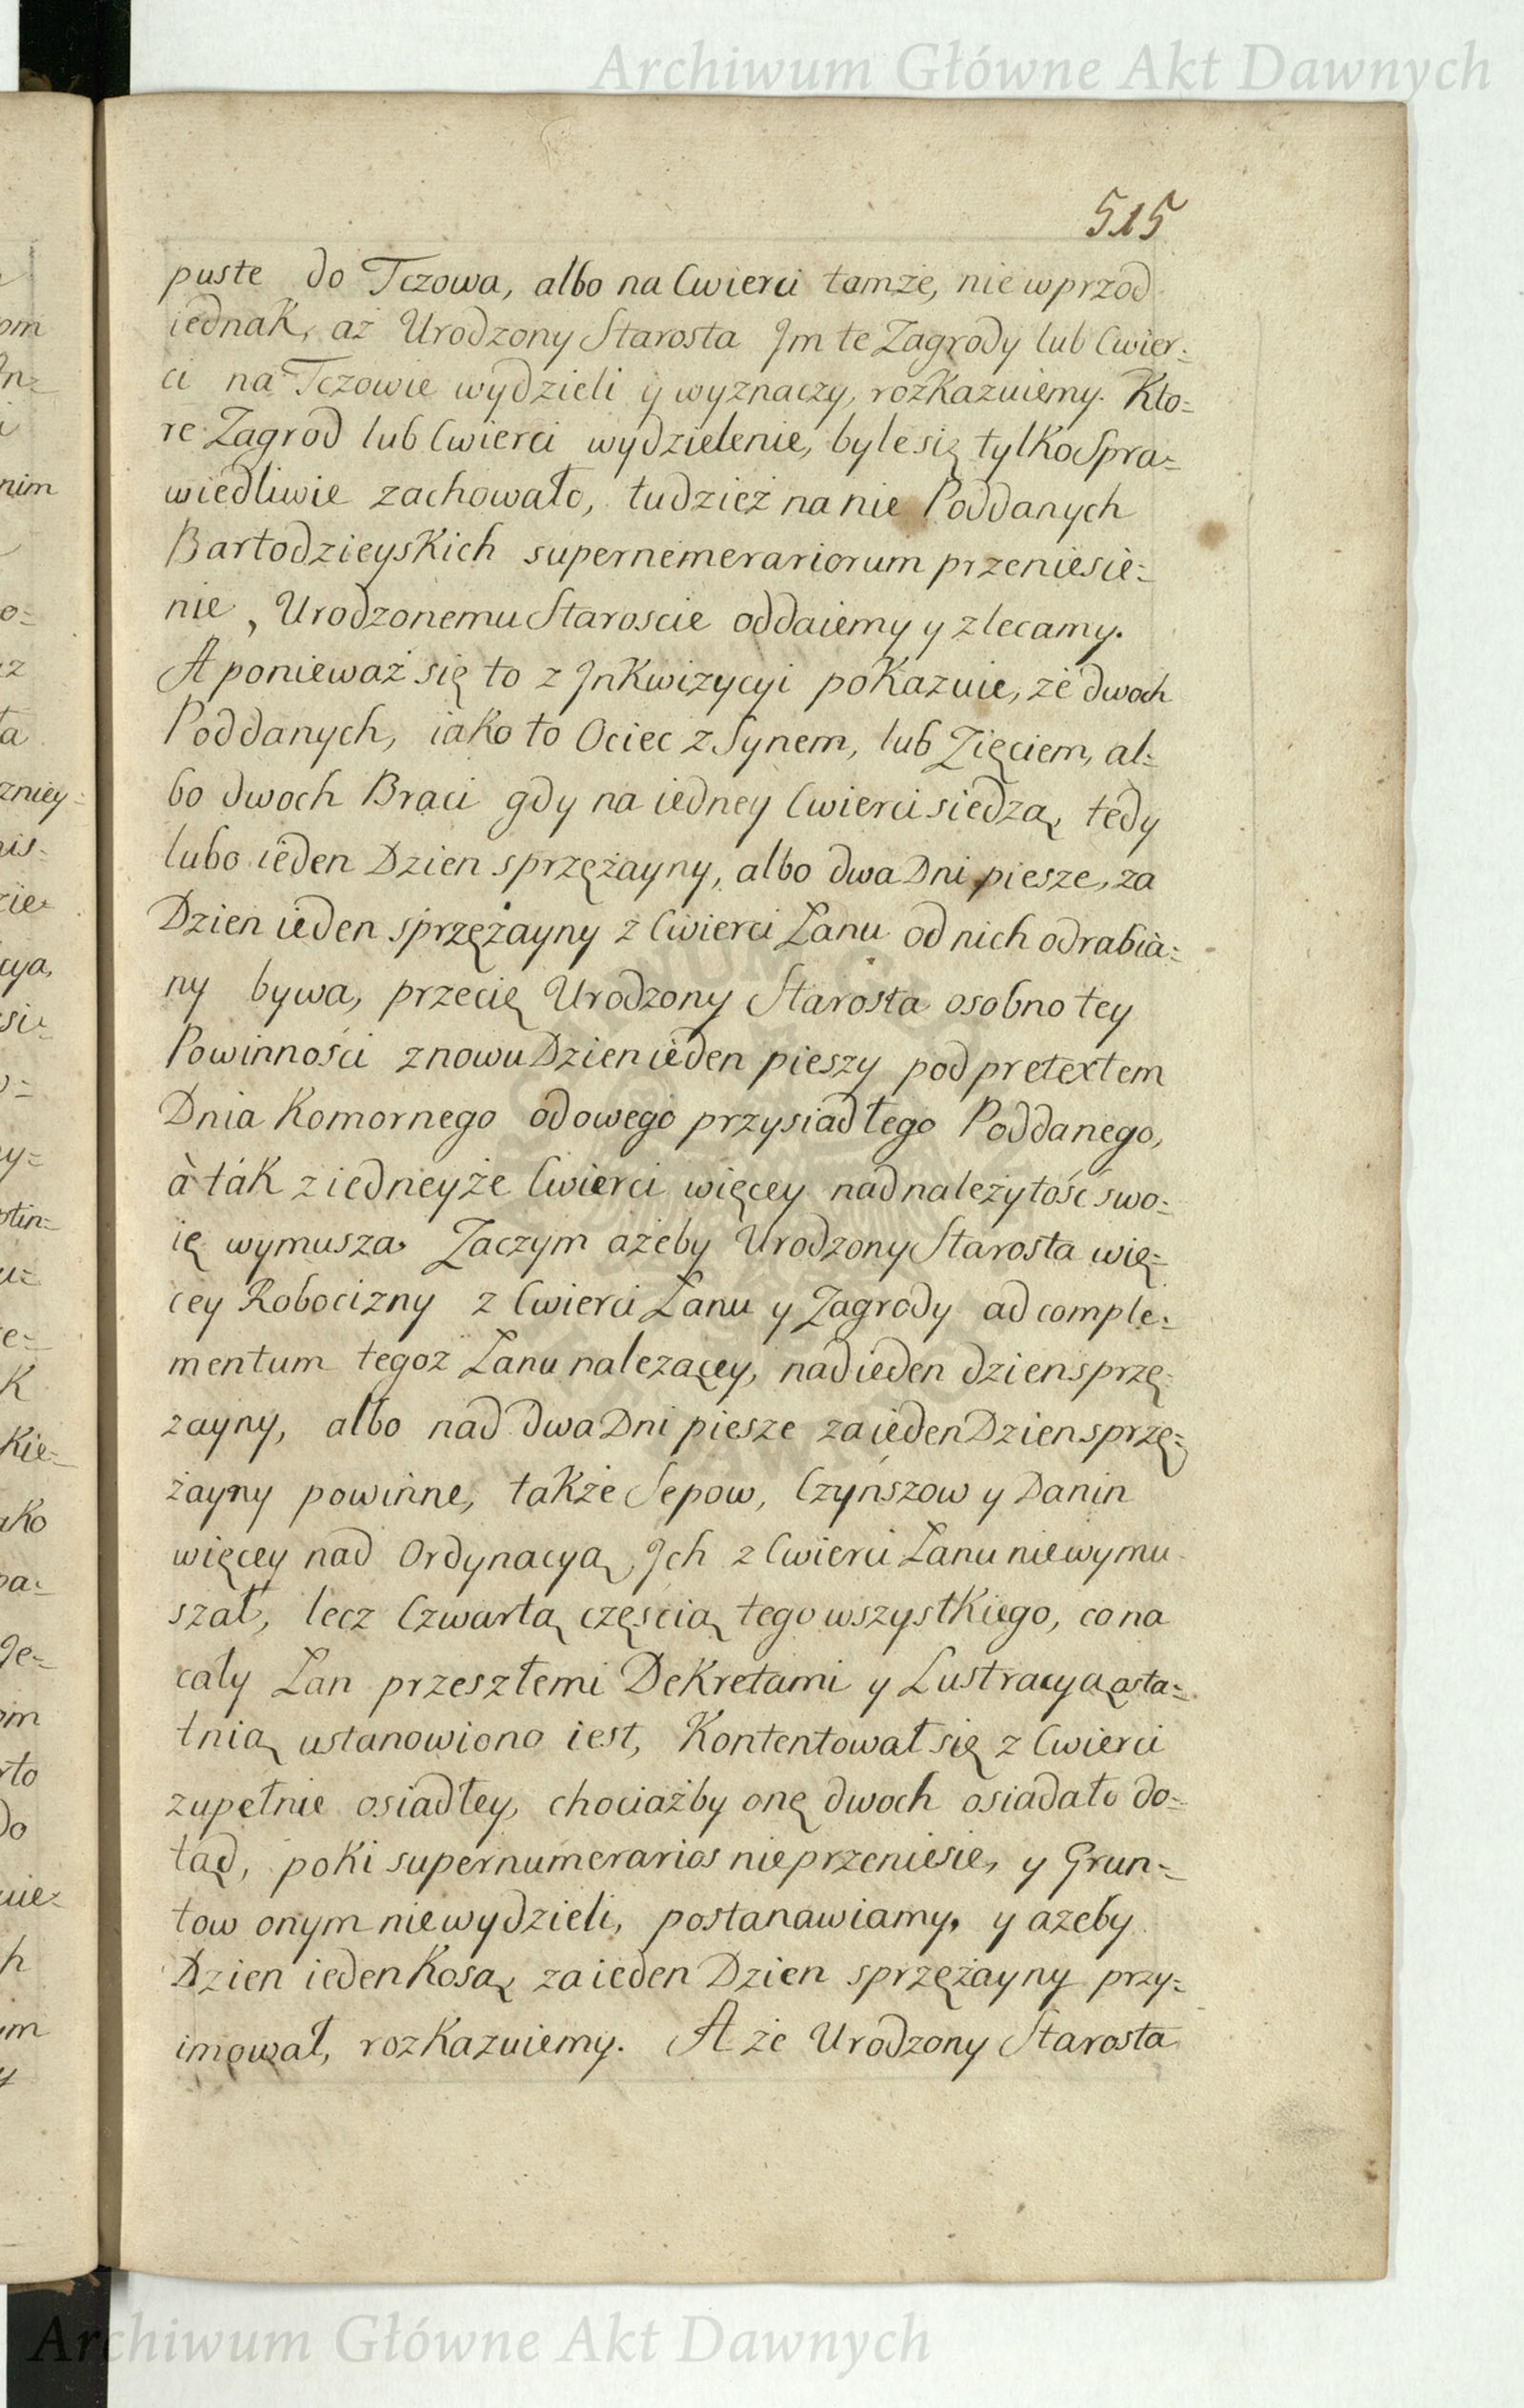 Archiwum Główne Akt Dawnych
515
puste do Tczowa, albo na Cwierci tamże, nie wprzod
iednak, aż Urodzony Starosta Jm te Zagrody lub Cwier=
ci na Tczowie wydzieli y wyznaczy, rozkazuiemy. Kto=
re Zagrod lub Cwierci wydzielenie, byle się tylko Spra=
wiedliwie zachowało, tudzież na nie Poddanych
Bartodzieyskich supernemerariorum przeniesie=
nie, Urodzonemu Staroscie oddaiemy y zlecamy.
A ponieważ się to z Jnkwizycyi pokazuie, że dwoch
Poddanych, iako to Ociec z Synem, lub Zięciem, al=
bo dwoch Braci gdy na iedney Cwierci siedzą, tedy
lubo ieden Dzien sprzężayny, albo dwa Dni piesze, za
Dzien ieden sprzężayny z Cwierci Łanu od nich odrabia=
ny bywa, przecię Urodzony Starosta osobno tey
Powinności znowu Dzien ieden pieszy pod pretextem
Dnia Komornego od owego przysiadłego Poddanego,
à ták z iedneyże Cwierci więcey nad należytość swo=
ię wymusza. Zaczym ażeby Urodzony Starosta wię=
cey Robocizny z Cwierci Łanu y Zagrody ad comple=
mentum tegoż Łanu nalezącey, nad ieden dzien sprzę=
zayny, albo nad dwa Dni piesze za ieden Dzien sprzę=
żayny powinne, także Sepow, Czynszow y Danin
więcey nad Ordynacyą Jch z Cwierci Łanu niewymu=
szał, lecz Czwartą częścią tego wszystkiego, co na
cały Łan przeszłemi Dekretami y Lustracyą osta=
tnią ustanowiono iest, Kontentował się z Cwierci
zupełnie osiadłey, chociażby onę dwoch osiadało do=
tąd, poki supernumerarios nieprzeniesie, y Grun=
tow onym niewydzieli, postanawiamy, y ażeby
Dzien ieden Kosą, za ieden Dzien sprzężayny przy=
imował, rozkazuiemy. A że Urodzony Starosta
Archiwum Główne Akt Dawnych